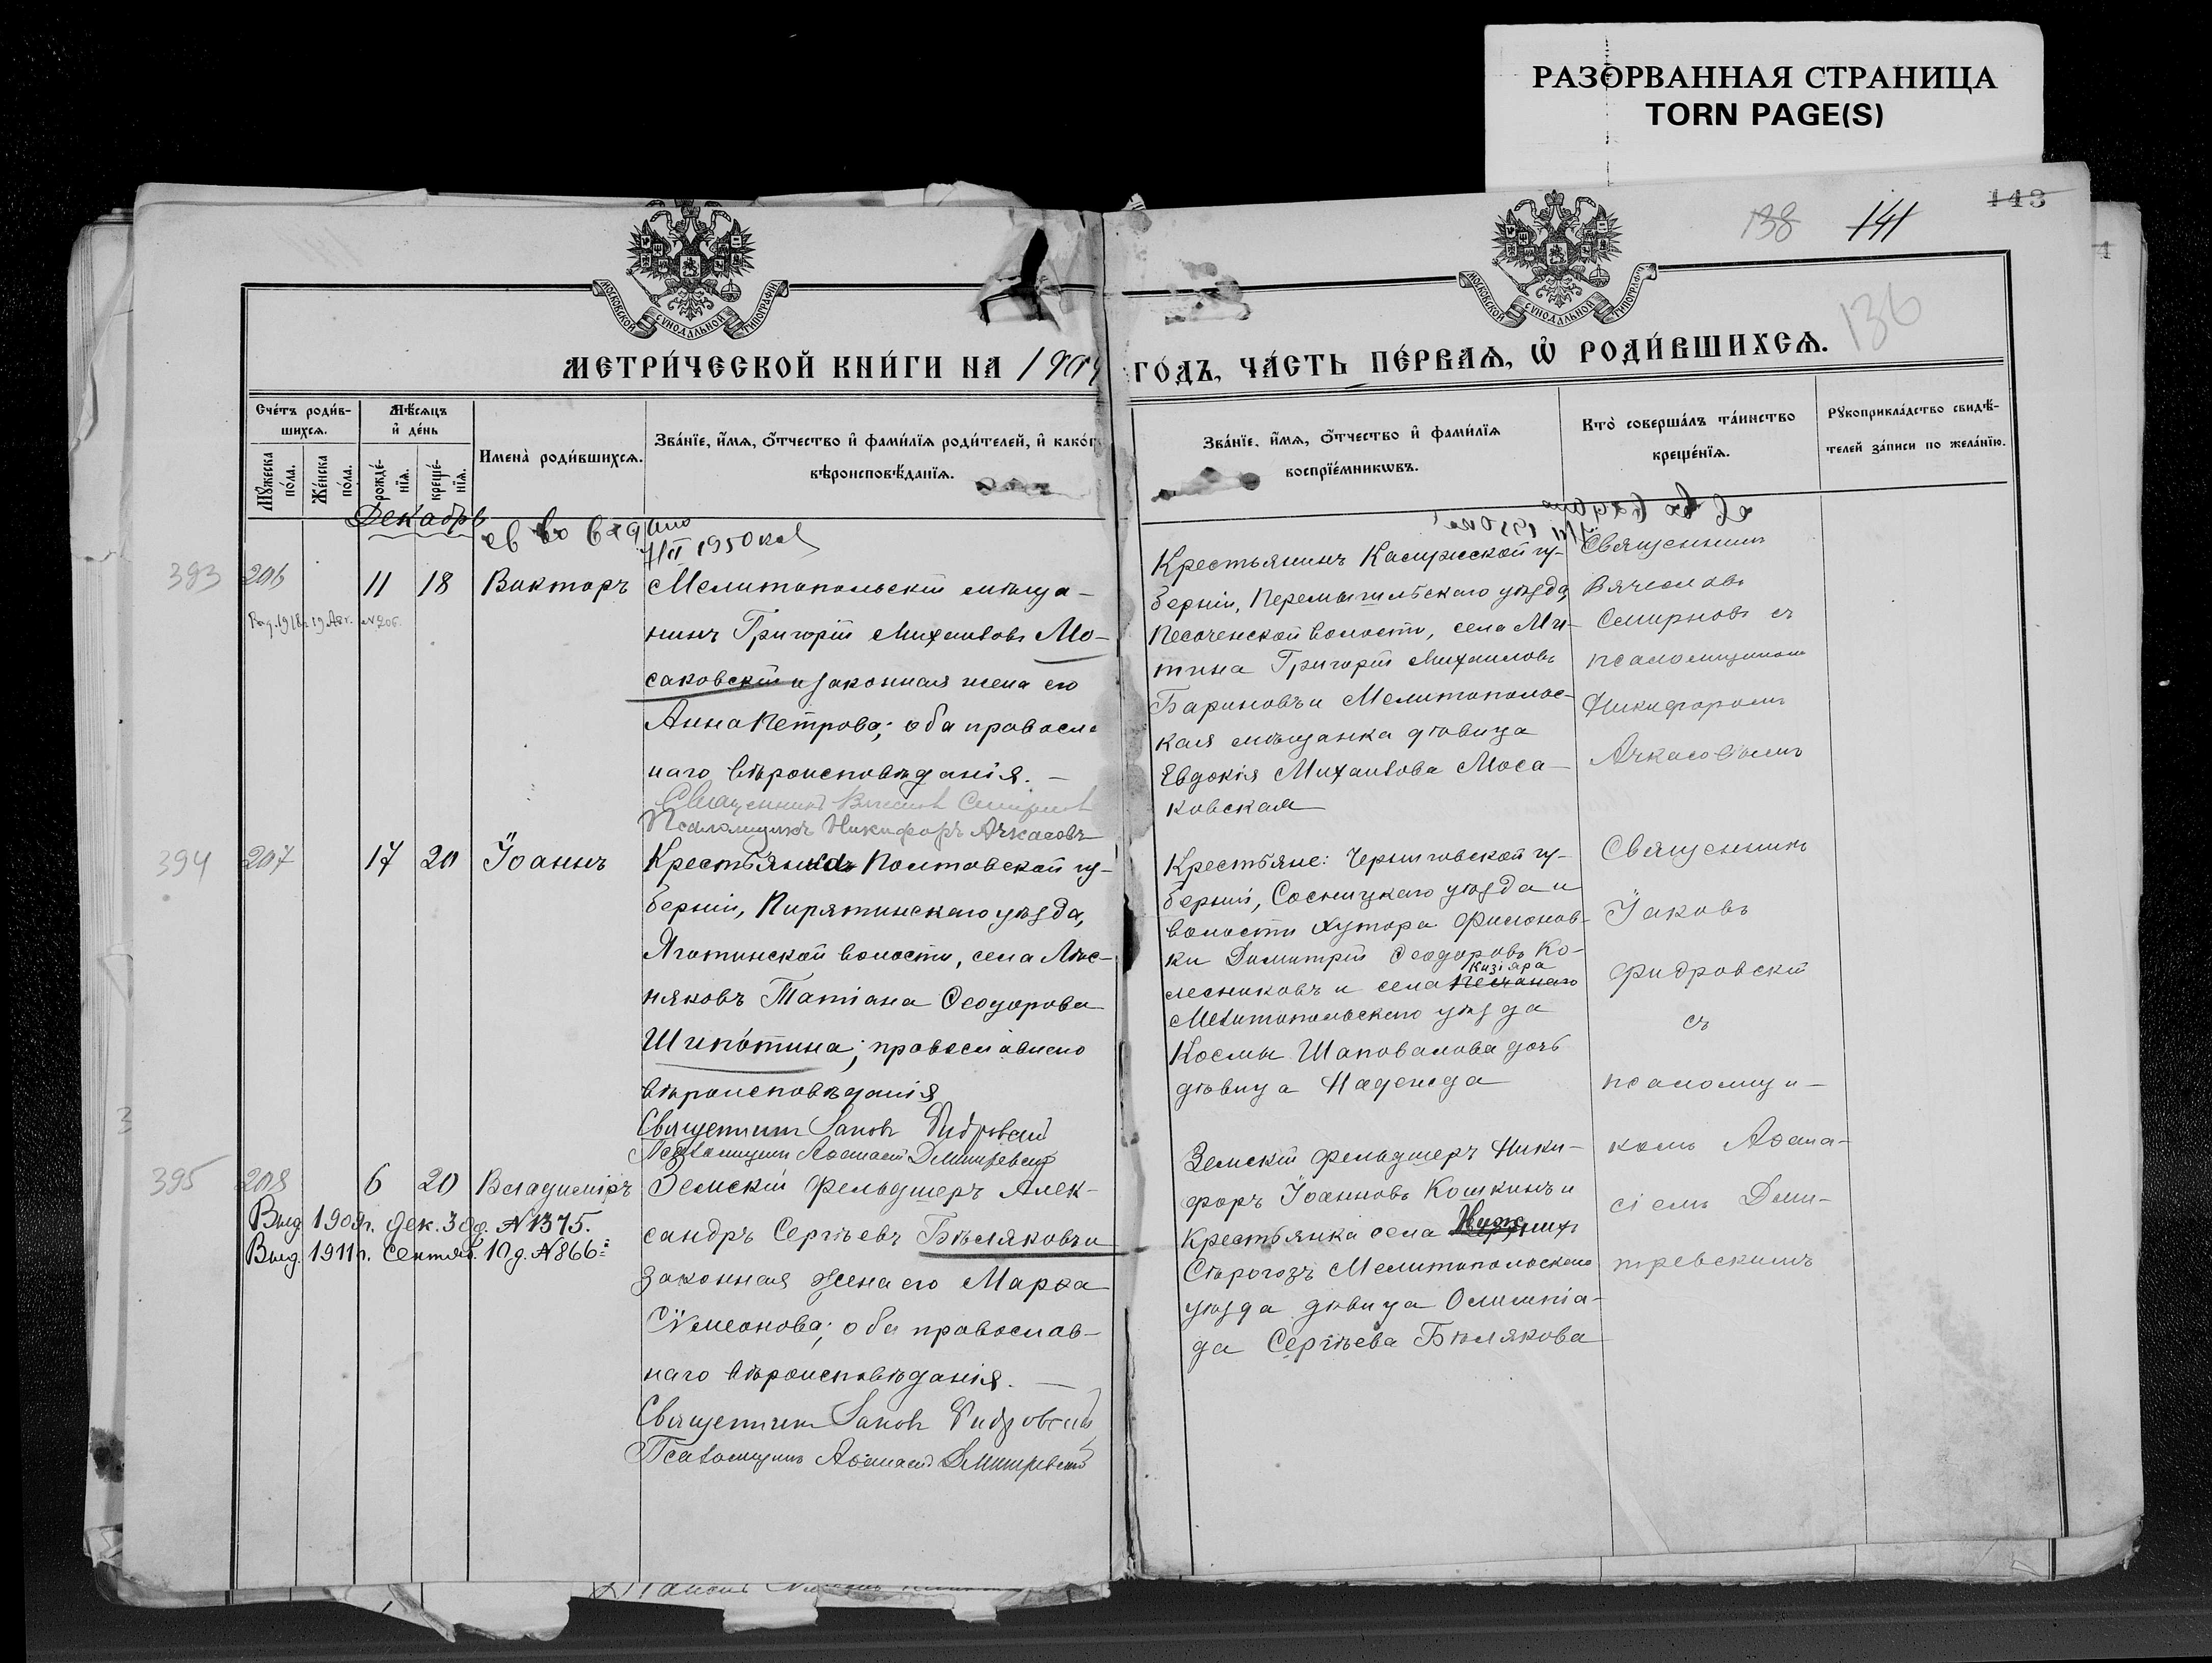 РАЗОРВАННАЯ СТРАНИЦА
TORN PAGE(S)
143
138 141
136
МОСКОВСКОЙ СѴНОДАЛЬНОЙ ТИПОГРАФІИ
МОСКОВСКОЙ СѴНОДАЛЬНОЙ ТИПОГРАФІИ
МЕТРИ́ЧЕСКОЙ КНИ́ГИ НА 1909
ГО́ДЪ, ЧА́СТЬ ПЕ́РВАѦ, Ѡ҆ РОДИ́ВШИХСѦ.
Сче́тъ роди́в-
шихсѧ.
Мꙋ́жеска по́ла.
Же́нска по́ла.
Мѣ́сѧцъ
и҆ де́нь
рожде́-
нїѧ.
креще́-
нїѧ.
Имена̀ роди́вшихсѧ.
Зва́нїе, и҆́мѧ, ѻ҆́тчество и҆ фами́лїѧ роди́телей, и҆ како́г
вѣроисповѣ́данїѧ.
Зва́нїе, и҆́мѧ, ѻ҆́тчество и҆ фами́лїѧ
воспрїе́мникѡвъ.
Кто̀ соверша́лъ та́инство
креще́нїѧ.
Рꙋкоприкла́дство свидѣ́-
телей за́писи по жела́нїю.
Декабрь
св во выдано
7/II 1950
393 206 11 18 Викторъ
Выд. 1918 г. 19 Авг. № 206.
Мелитопольскій мѣща-
нинъ Григорій Михаиловъ Мо-
саковскій и законная жена его
Анна Петрова; оба православ
наго вѣроисповѣданія. —
Священникъ Вячеслав Смирнов
Псаломщикъ Никифоръ Ачкасовъ
Крестьянинъ Калужской гу-
берніи, Перемышльскаго уѣзда,
Песоченской волости, села Ми-
тина Григорій Михаиловъ
Бариновъ и Мелитопольс-
кая мѣщанка дѣвица
Евдокія Михаилова Моса-
ковская
Священникъ
Вячеславъ
Смирновъ съ
псаломщикомъ
Никифоромъ
Ачкасовымъ
394 207 17 20 Іоаннъ
Крестьянка Полтавской гу-
берніи, Пирятинскаго уѣзда,
Яготинской волости, села Лѣс-
няковъ Татіана Ѳеодорова
Шипотина; православнаго
вѣроисповѣданія
Священник Іаков Фидровскій
Псаломщикъ Аѳанасій Дмитревскій
Крестьяне: Черниговской гу-
берніи, Сосницкаго уѣзда и
волости хутора Филонов-
ки Димитрій Ѳеодоровъ Ко-
лесниковъ и села Песчанаго
Кизіяра
Мелитопольскаго уѣзда
Космы Шаповалова дочь
дѣвица Надежда
Священникъ
Іаковъ
Фидровскій
съ
псаломщи-
комъ Аѳана-
сіемъ Дми-
тревскимъ
395 208 6 20 Владиміръ
Выд. 1909 г. дек. 30 д. № 1375.
Выд. 1911 г. Сентяб. 10 д. № 866.
Земскій фельдшеръ Алек-
сандръ Сергѣевъ Бѣляковъ и
законная жена его Марѳа
Сѵмеонова; оба православ-
наго вѣроисповѣданія. —
Священник Іаков Фидровскій
Псаломщикъ Аѳанасій Дмитревскій
Земскій фельдшеръ Ники-
форъ Іоанновъ Кошкинъ и
Крестьянка села Нижнихъ
Сѣрогозъ Мелитопольскаго
уѣзда дѣвица Олимпіа-
да Сергѣева Бѣлякова